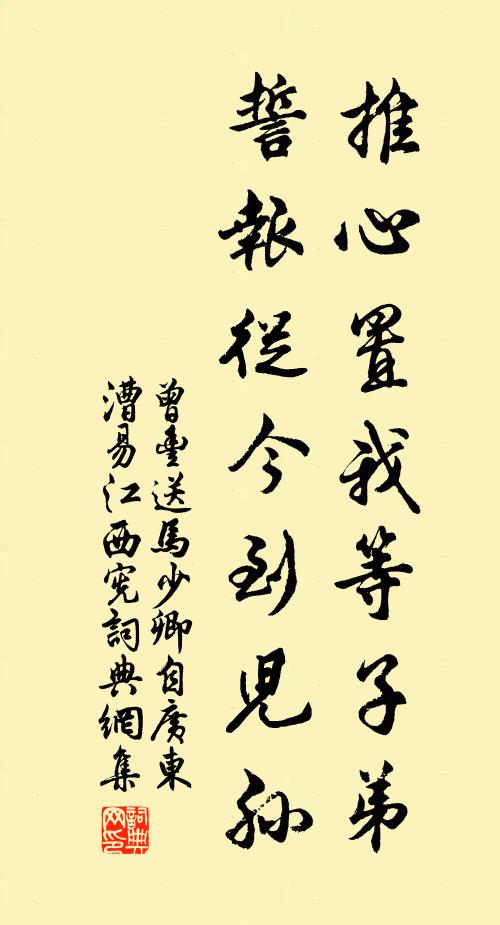 推心置我等子弟
誓報從今到兒孫
曾豐送馬少卿自廣東
漕易江西憲詞典網集
詞典
网印